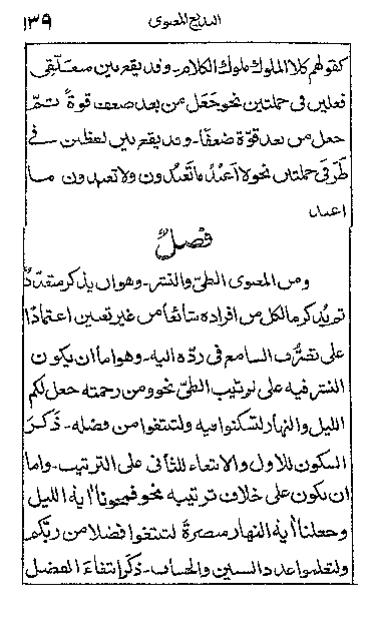 البديع المعنوى ١٣٩
كقولهم كلام الملوك ملوك الكلام۔ وقد يقع بين متعلّقى
فعلين فى جملتين نحو جَعَل من بعد ضعف قوةً ثمّ
جعل من بعد قوّة ضعفًا۔ وقد يقع بين لفظين فے
طرَفى جملتين نحو لا اَعبُدُ ما تَعبُدون ولا تعبدون ما
اعبد
فصلٌ
ومن المعنوى الطىّ والنشر۔ وهو ان يذكر متعدّدٌ
ثم يُذكر ما لكل من افراده شائعًا من غير تعيين اعتمادًا
على تصرُّف السامع فى ردّه اليه۔ وهو اما ان يكون
النشر فيه على ترتيب الطىّ نحو ومن رحمته جعل لكم
الليل والنهار لتسكنوا فيه ولتبتغوا من فضله۔ ذَكَرَ
السكون للاول والابتغاء للثانى على الترتيب۔ واما
ان يكون على خلاف ترتيبه نحو فمحونا اٰية الليل
وجعلنا اٰية النهار مبصرةً لتبتغوا فضلا من ربّكم
ولتعلموا عدد السنين والحساب۔ ذكَر ابتغاءَ الفضل